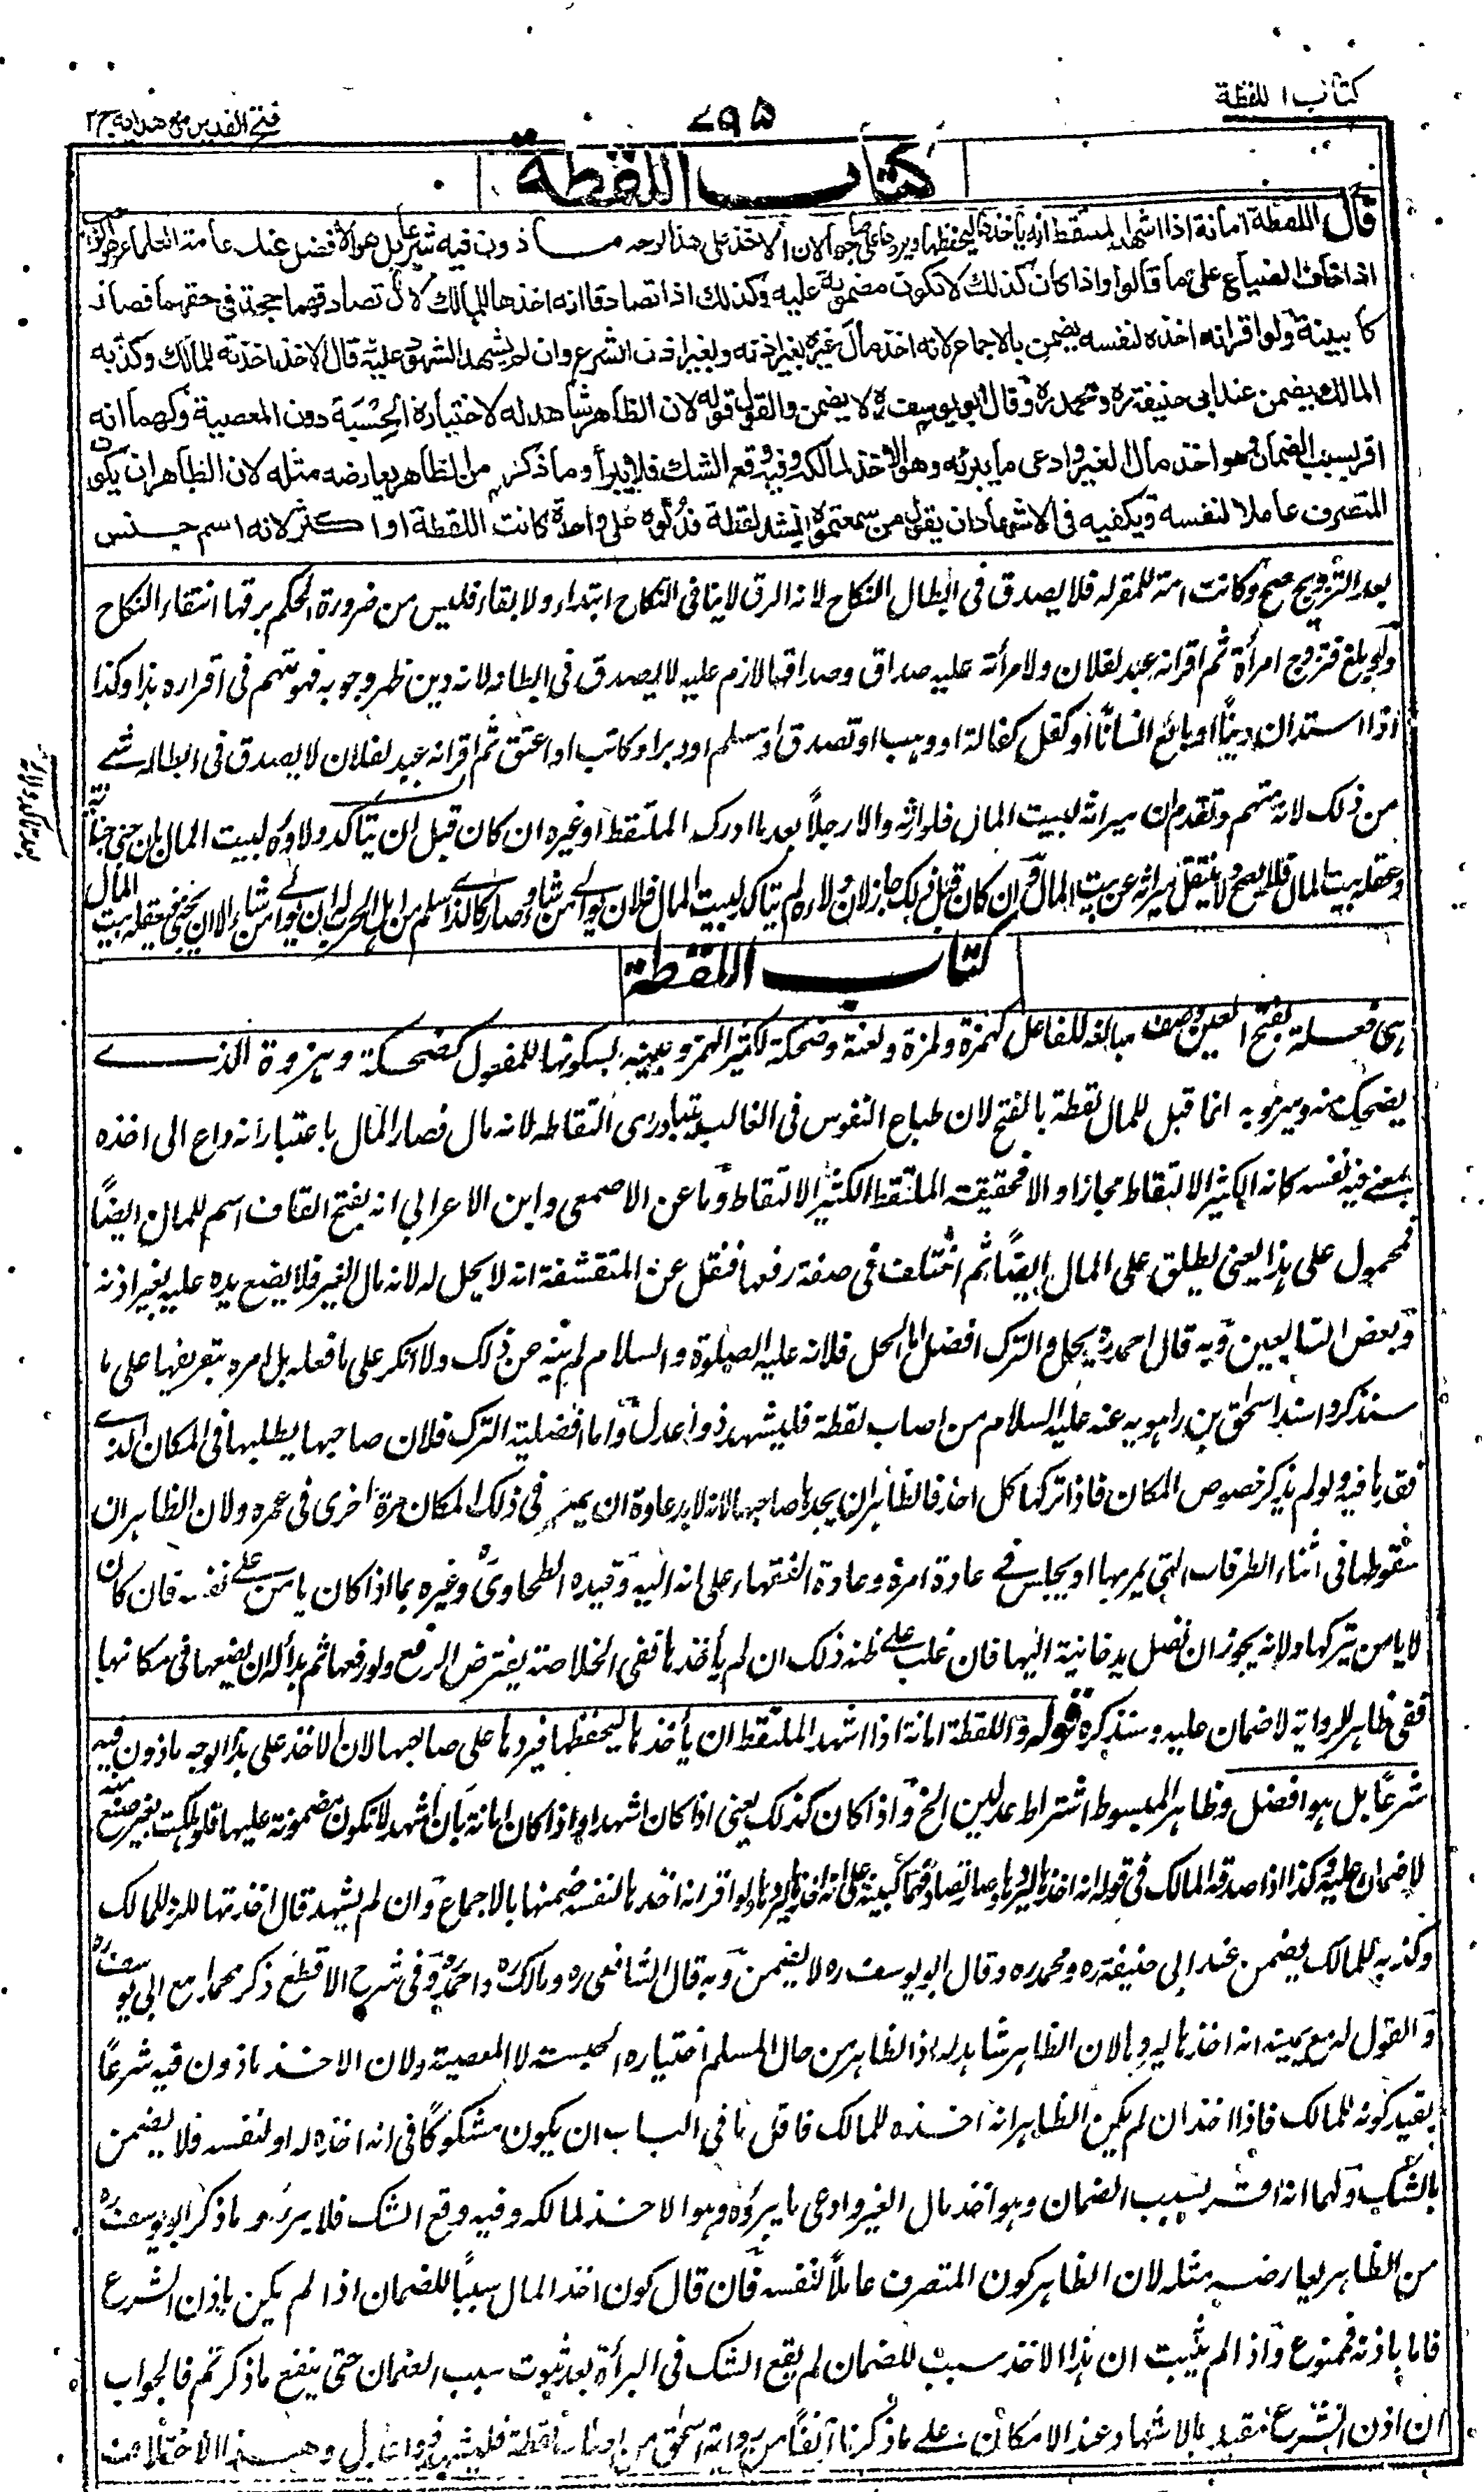 كتاب اللقطة
٧٩٥
فتح القدير مع هدايه ج ٢
كتاب اللقطة
قال اللقطة امانة اذا اشهد الملتقط انه يأخذها ليحفظها ويردها على صاحبها لان الاخذ على هذا الوجه ماذون فيه شرعا بل هو الافضل عند عامة العلماء وهو الواجب
اذا خاف الضياع على ما قالوا واذا كان كذلك لا تكون مضمونة عليه وكذلك اذا تصادقا انه اخذها للمالك لان تصادقهما حجة فى حقهما فصار
كالبينة ولو اقر انه اخذه لنفسه يضمن بالاجماع لانه اخذ مال غيره بغير اذنه وبغير اذن الشرع وان لم يشهد الشهود عليه وقال الاخذ اخذته للمالك وكذبه
المالك يضمن عند ابى حنيفة ره ومحمد ره وقال ابو يوسف ره لا يضمن والقول قوله لان الظاهر شاهد له لاختياره الحسبة دون المعصية ولهما انه
اقر بسبب الضمان وهو اخذ مال الغير وادعى ما يبرئه وهو الاخذ لمالكه وفيه وقع الشك فلا يبرأ وما ذكر من الظاهر يعارضه مثله لان الظاهر ان يكون
المتصرف عاملا لنفسه ويكفيه فى الاشهاد ان يقول من سمعتموه ينشد لقطة فدلوه على واحدة كانت اللقطة او اكثر لانه اسم جنس
بعد التزويج صح وكانت امة للمقر له فلا يصدق فى ابطال النكاح لانه الرق لا ينافى النكاح ابتداء ولا بقاء فليس من ضرورة الحكم برقها انتفاء النكاح
ولو بلغ فتزوج امرأة ثم اقر انه عبد لفلان ولامرأته عليه صداق وصداقها لازم عليه لا يصدق فى ابطاله لانه دين ظهر وجوبه فهو متهم فى اقراره هذا وكذا
اذا استدان دينا او بايع انسانا او كفل كفالة او وهب او تصدق او سلم او دبر او كاتب او اعتق ثم اقر انه عبد لفلان لا يصدق فى ابطال شے
من ذلك لانه متهم وتقدم ان ميراثه لبيت المال فلو اثه والا رجلا بعد ما ادرك الملتقط او غيره ان كان قبل ان يتاكد ولاؤه لبيت المال بان جنى جناية
وعقله بيت المال فلا يصح ولا ينتقل ميراثه عن بيت المال وان كان قبل ذلك جاز لان ولاءه لم يتاكد لبيت المال فله ان يوالے من شاء وصار كالذے اسلم من اهل الحرب له ان يوالے من شاء الا ان يجنى فيعقله بيت المال
كتاب اللقطة
هى فعلة بفتح العين وصف مبالغة للفاعل كهمزة ولمزة ولعنة وضحكة لكثير الهمز وغيره وبسكونها للمفعول كضحكة وهزوة الذے
يضحك منه ويهزو به انما قيل للمال لقطة بالفتح لان طباع النفوس فى الغالب تتبادر الى التقاطه لانه مال فصار المال باعتبار انه داع الى اخذه
بمعنے فيه نفسه كانه الكثير الالتقاط مجازا والا فحقيقته الملتقط الكثير الالتقاط وما عن الاصمعى وابن الاعرابى انه بفتح القاف اسم للمال ايضا
فمحمول على هذا يعنى يطلق على المال ايضا ثم اختلف فى صفة رفعها فنقل عن المتقشفة انه لا يحل له لانه مال الغير فلا يضع يده عليه بغير اذنه
وبعض التابعين وبه قال احمد ره يحل والترك افضل اما الحل فلانه عليه الصلوة والسلام لم ينه عن ذلك ولا انكر على ما فعله بل امره بتعريفها على ما
سنذكر واسند اسحق بن راهويه عنه عليه السلام من اصاب لقطة فليشهد ذوا عدل واما افضلية الترك فلان صاحبها يطلبها فى المكان الذے
فقدها فيه ولو لم يذكر خصوص المكان فاذا تركها كل احد فالظاهر ان يجدها صاحبها لانه لا بد عادة ان يمر فى ذلك المكان مرة اخرى فى عمره ولان الظاهر ان
سقوطها فى اثناء الطرقات التى يمر بها او يجلس فے عادة امره وعادة الفقهاء على انه اليه وقيده الطحاوى وغيره بما اذا كان يامن علے نفسه فان كان
لا يامن يتركها ولانه يجوز ان تصل يد خائنة اليها فان غلب علے ظنه ذلك ان لم يأخذها ففى الخلاصة يفترض الرفع ولو رفعها ثم بدأ له ان يضعها فى مكانها
ففى ظاهر الرواية لا ضمان عليه وسنذكره قوله واللقطة امانة اذا اشهد الملتقط ان يأخذها ليحفظها فيردها على صاحبها لان الاخذ على هذا الوجه ماذون فيه
شرعا بل هو افضل وظاهر المبسوط اشتراط عدلين الخ واذا كان كذلك يعنى اذا كان اشهد او اذا كان امانة بان اشهد لا تكون مضمونة عليها فلو هلكت بغير صنع منه
لا ضمان عليه وكذا اذا صدقه المالك فى قوله انه اخذها ليردها وصار تصادقهما كبينة على انه اخذها ليردها ولو اقر انه اخذها لنفسه ضمنها بالاجماع وان لم يشهد قال اخذتها للرد للمالك
وكذبه المالك يضمن عند ابى حنيفة ره ومحمد ره وقال ابو يوسف ره لا يضمن وبه قال الشافعى ره ومالك ره واحمد ره وفى شرح الاقطع ذكر محمدا مع ابى يوسف ره
والقول له مع يمينه انه اخذها ليردها لان الظاهر شاهد له اذ الظاهر من حال المسلم اختياره الحسبة لا المعصية ولان الاخذ ماذون فيه شرعا
بقيد كونه للمالك فاذا اخذ ان لم يكن الظاهر انه اخذه للمالك فاقل ما فى الباب ان يكون مشكوكا فى انه اخذه له او لنفسه فلا يضمن
بالشك ولهما انه اقر بسبب الضمان وهو اخذ مال الغير وادعى ما يبرؤه وهو الاخذ لمالكه وفيه وقع الشك فلا يبرء وما ذكر ابو يوسف ره
من الظاهر يعارضه مثله لان الظاهر كون المتصرف عاملا لنفسه فان قال كون اخذ المال سببا للضمان اذا لم يكن باذن الشرع
فاما باذنه فممنوع واذا لم يثبت ان هذا الاخذ سبب للضمان لم يقع الشك فى البرأة بعد ثبوت سبب الضمان حتى ينفع ما ذكرتم فالجواب
ان اذن الشرع مقيد بالاشهاد عند الامكان علے ما ذكرنا آنفا من رواية اسحق من اصاب لقطة فليشهد ذوا عدل وهذا الاختلاف